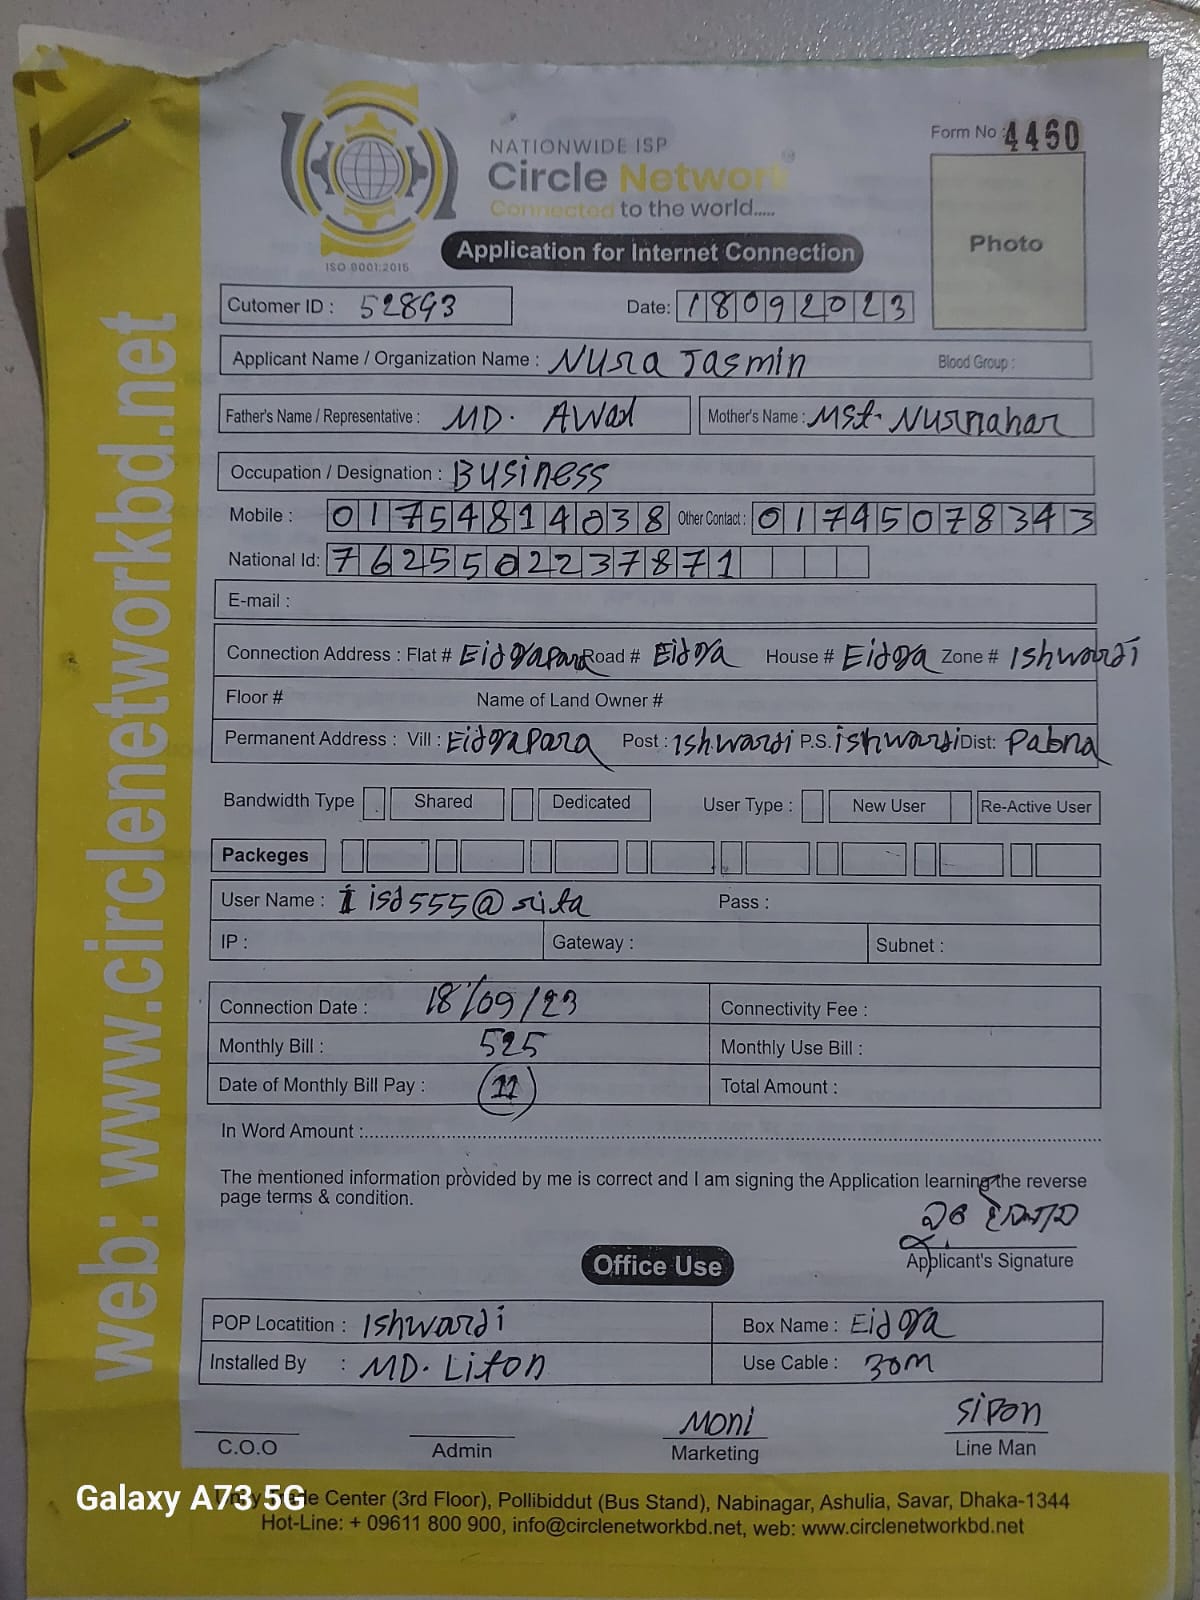 Form No : 4460
NATIONWIDE ISP
Circle Network
Connected to the world.....
Photo
Application for Internet Connection
ISO 9001:2015
Cutomer ID : 52893 Date: 18092023
Applicant Name / Organization Name : Nura Jasmin Blood Group :
Father's Name / Representative : MD. AWal Mother's Name : Mst. Nurnahar
Occupation / Designation : Business
Mobile : 01754814038 Other Contact : 01745078343
National Id: 7625502237871
E-mail :
Connection Address : Flat # Eidgapara Road # Eidga House # Eidga Zone # Ishwardi
Floor # Name of Land Owner #
Permanent Address : Vill : Eidgapara Post : Ishwardi P.S. ishwardi Dist: Pabna
Bandwidth Type Shared Dedicated User Type : New User Re-Active User
Packeges
User Name : isd555@rita Pass :
IP : Gateway : Subnet :
Connection Date : 18/09/23 Connectivity Fee :
Monthly Bill : 525 Monthly Use Bill :
Date of Monthly Bill Pay : 11 Total Amount :
In Word Amount :
The mentioned information provided by me is correct and I am signing the Application learning the reverse
page terms & condition.
Applicant's Signature
Office Use
POP Locatition : Ishwardi Box Name : Eidga
Installed By : MD. Liton Use Cable : 30m
Moni Sipon
C.O.O Admin Marketing Line Man
Center (3rd Floor), Pollibiddut (Bus Stand), Nabinagar, Ashulia, Savar, Dhaka-1344
Hot-Line: + 09611 800 900, info@circlenetworkbd.net, web: www.circlenetworkbd.net
web: www.circlenetworkbd.net
Galaxy A73 5G